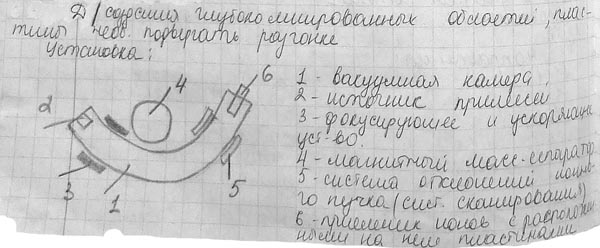 Д/создания глубоколигированных областей, плас-
тины необ. подвергать разгонке
Установка:
1 - вакуумная камера
2 - источник примесей
3 - фокусирующее и ускоряющее
уст-во.
4 - магнитный масс-сепаратор
5 - система отклонений ионно-
го пучка (сист. сканирования)
6 - приемник ионов с расположен
ными на нем пластинами
2
4
6
3
1
5